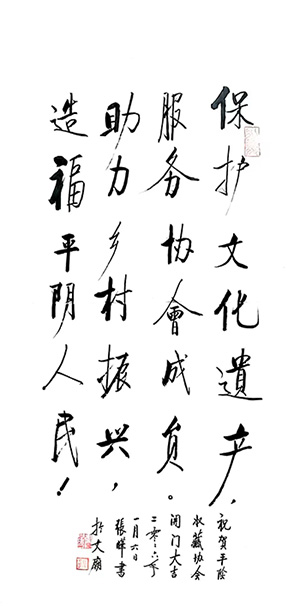 保护文化遺产，
服务协會成员。
助力乡村振兴，
造福平阴人民！
祝贺平阴
收藏协会
闭门大吉
二零二六年
一月六日
張晖書
於大廟